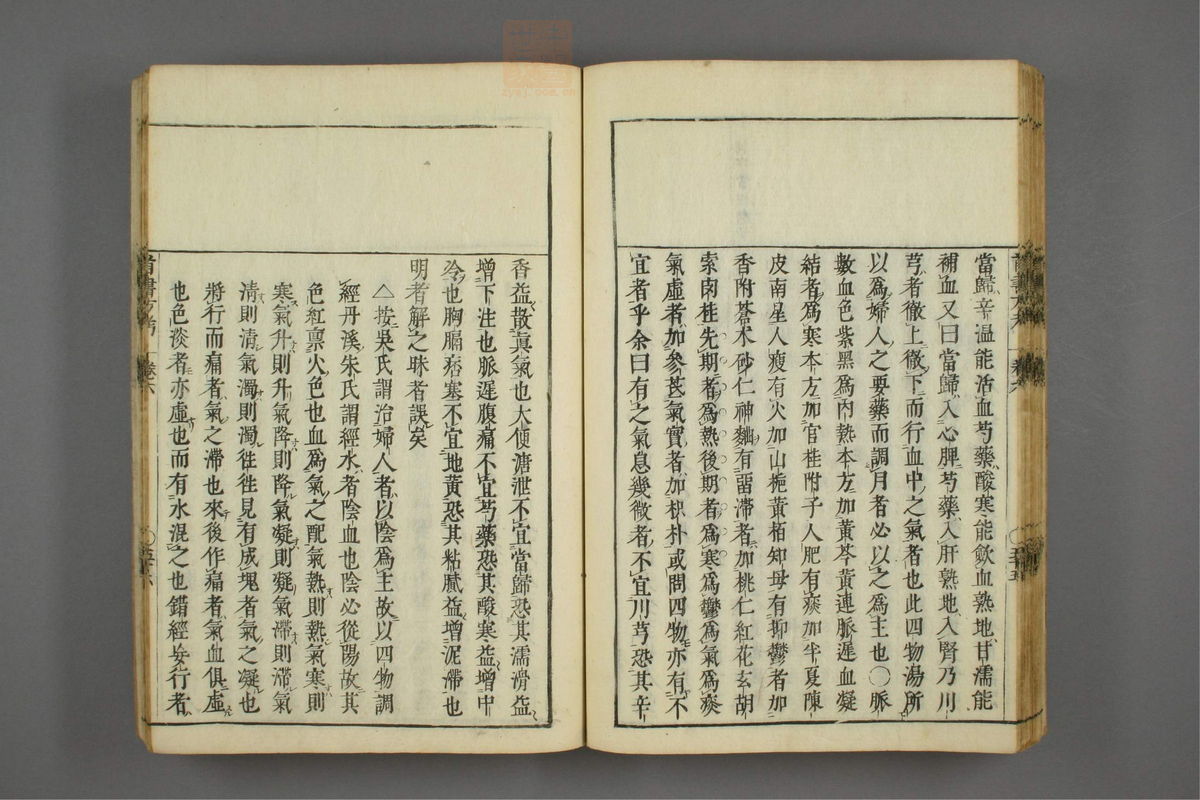 當歸辛溫能活血芍藥酸寒能歛血熟地甘濡能
補血又曰當歸入心脾芍藥入肝熟地入腎乃川
芎者徹上徹下而行血中之氣者也此四物湯所
以爲婦人之要藥而調月者必以之爲主也〇脈
數血色紫黑爲內熱本方加黃芩黃連脈遲血凝
結者爲寒本方加官桂附子人肥有痰加半夏陳
皮南星人瘦有火加山梔黃栢知母有抑鬱者加
香附蒼朮砂仁神麯有畱滯者加桃仁紅花玄胡
索肉桂先期者爲熱後期者爲寒爲鬱爲氣爲痰
氣虛者加參芪氣實者加枳朴或問四物亦有不
宜者乎余曰有之氣息幾微者不宜川芎恐其辛
香益散眞氣也大便溏泄不宜當歸恐其濡滑益
增下注也脈遲腹痛不宜芍藥恐其酸寒益增中
冷也胸膈痞塞不宜地黃恐其粘膩益增泥滯也
明者解之昧者誤矣
△按吳氏謂治婦人者以陰爲主故以四物調
經丹溪朱氏謂經水者陰血也陰必從陽故其
色紅禀火色也血爲氣之配氣熱則熱氣寒則
寒氣升則升氣降則降氣凝則凝氣滯則滯氣
清則清氣濁則濁徃徃見有成塊者氣之凝也
將行而痛者氣之滯也來後作痛者氣血俱虛
也色淡者亦虛也而有水混之也錯經妄行者